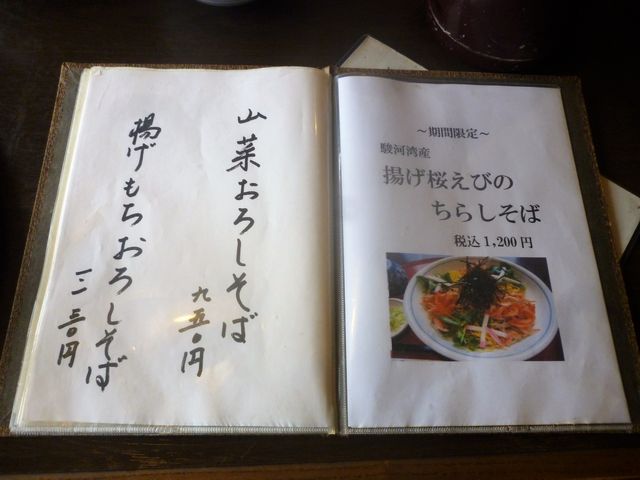 山菜おろしそば
九五〇円
揚げもちおろしそば
一一三〇円
～期間限定～
駿河湾産
揚げ桜えびの
ちらしそば
税込1,200円